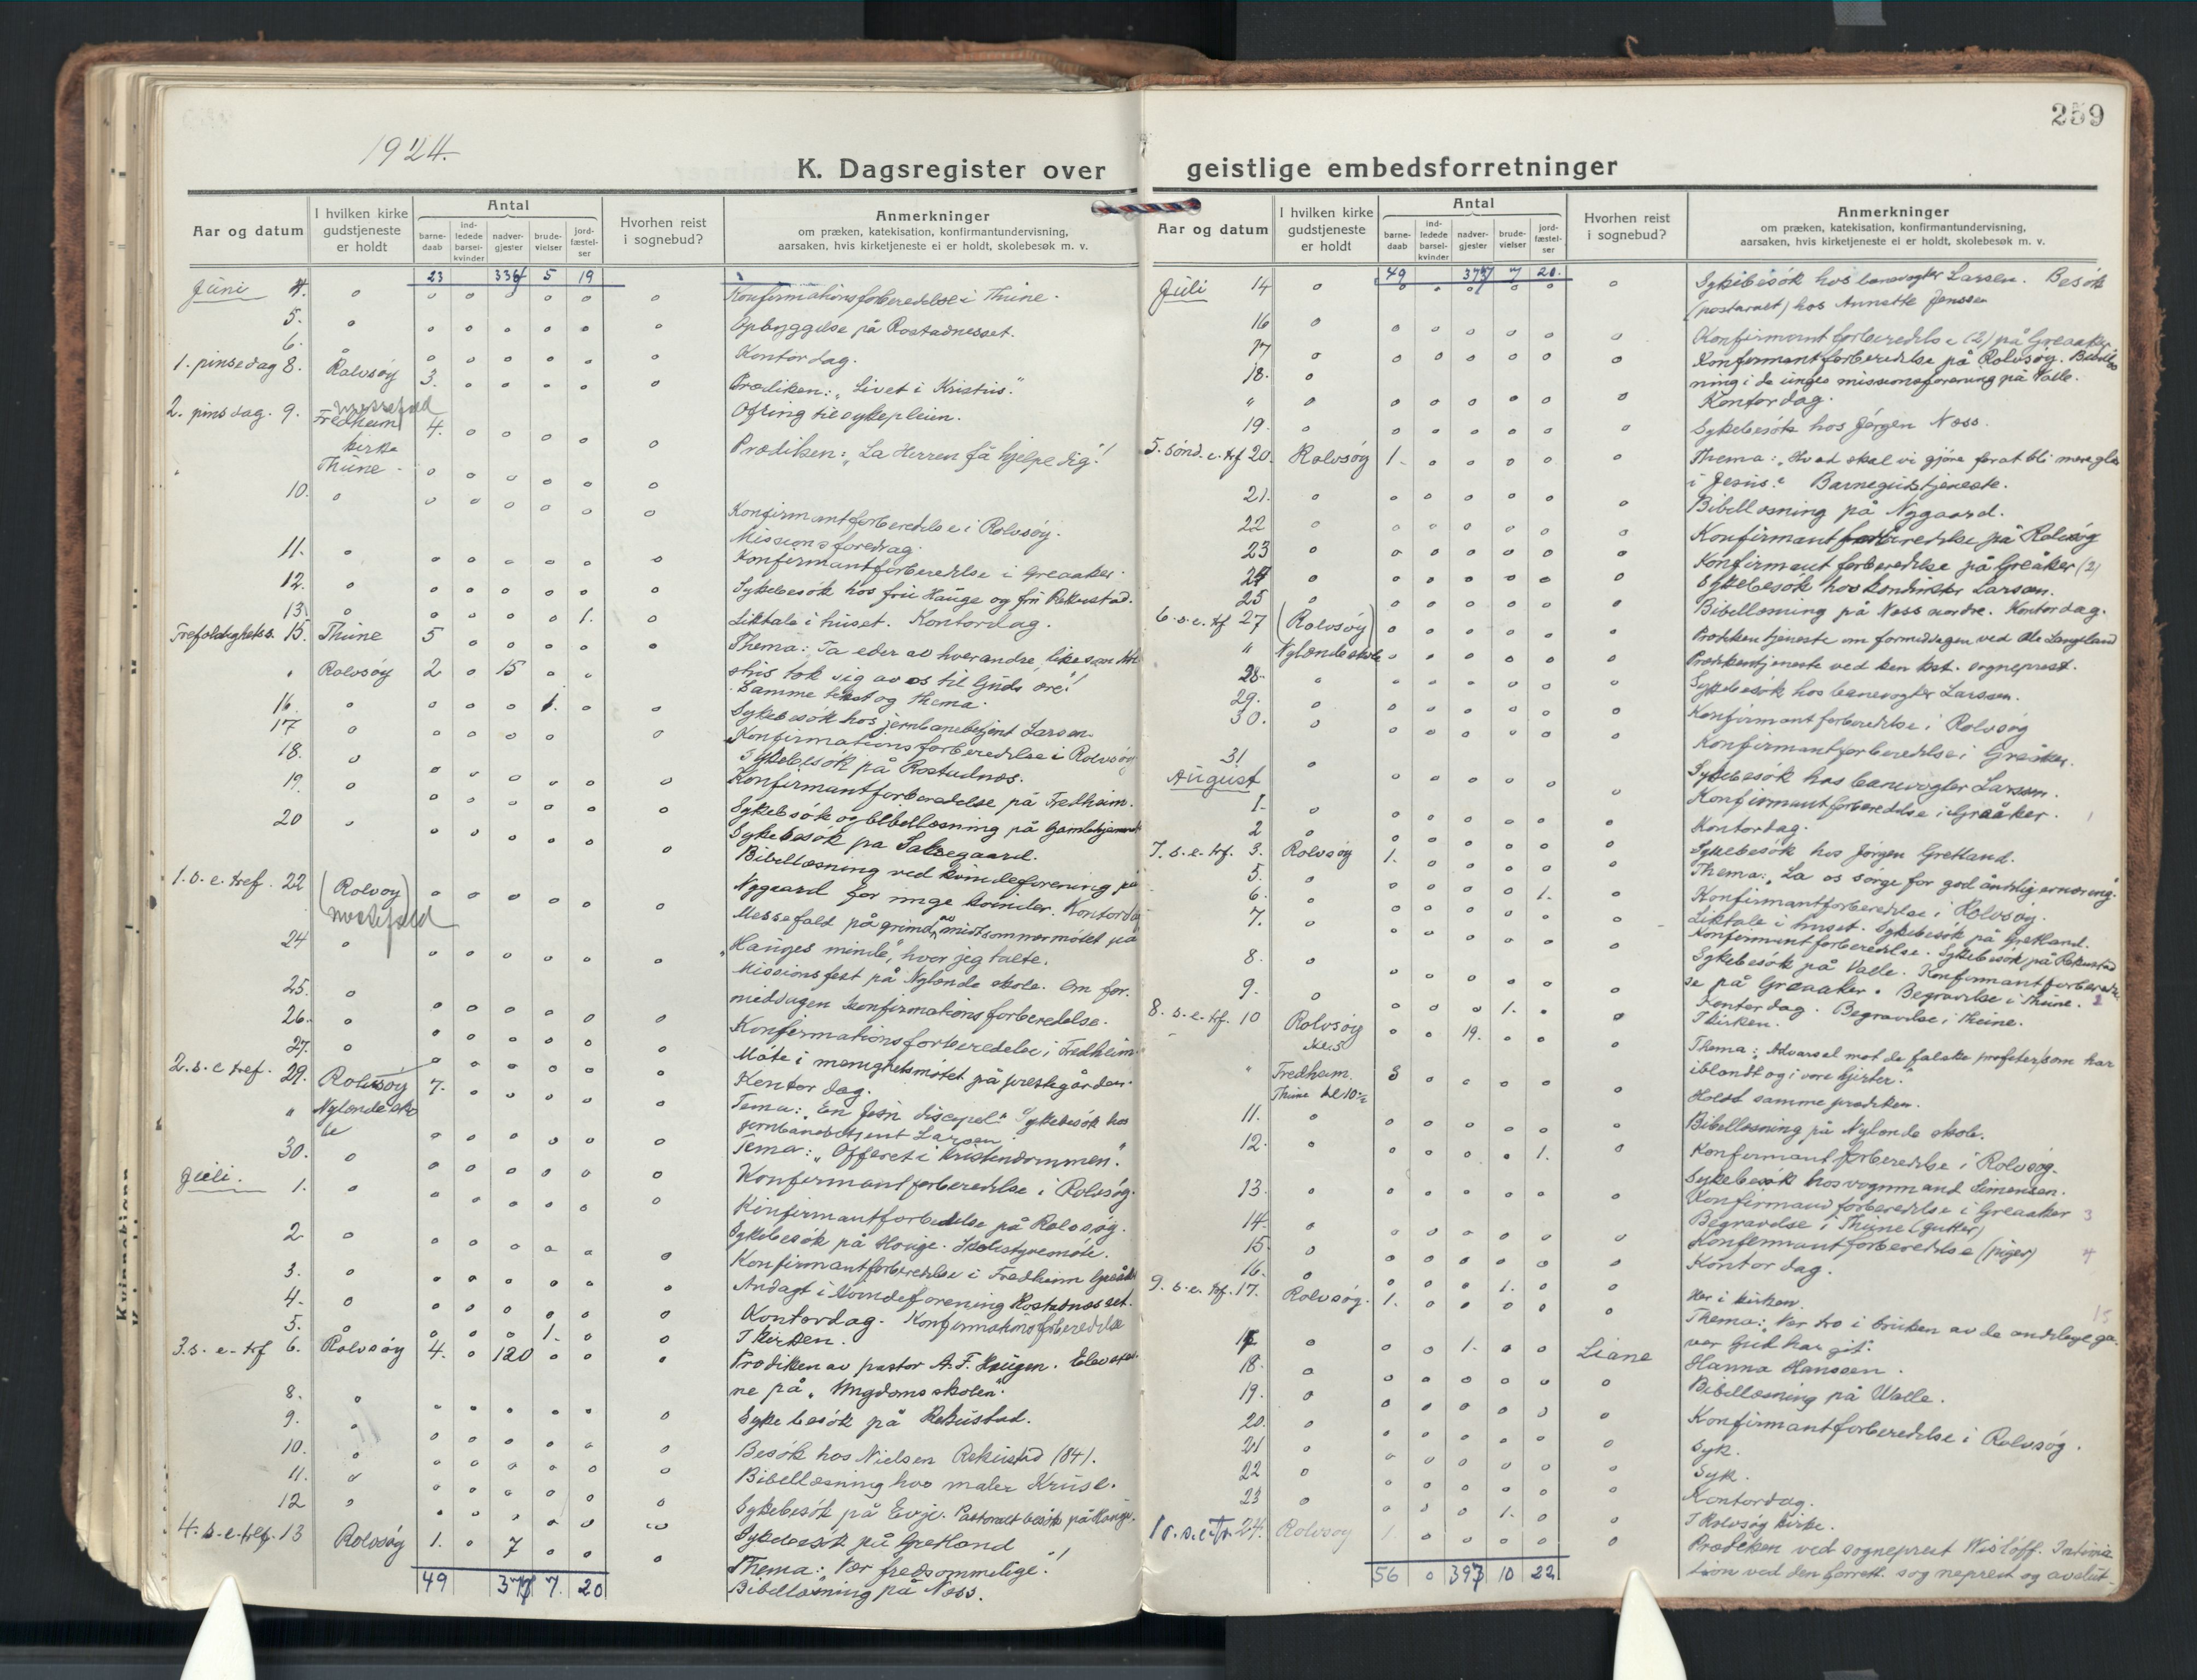 1924.
K. Dagsregister over
Aar og datum
I hvilken kirke gudstjeneste er holdt
Antal
barne-daab
ind-ledede barsel-kvinder
nadver-gjester
brude-vielser
jord-fæstel-ser
Hvorhen reist i sognebud?
Anmerkninger
om præken, katekisation, konfirmantundervisning,
aarsaken, hvis kirketjeneste ei er holdt, skolebesøk m. v.
23 336 5 19
Juni 4. o o o o o o o Konfirmationsforberedelse i Thune.
5. o o o o o o o Opbyggelse på Rostadnesset.
6. o o o o o o Kontordag.
1. pinsedag 8. Rolvsøy 3. o o o o o Prædiken: "Livet i Kristus".
Ofring til sykepleien.
2. pinsdag. 9. messefald Fredheim kirke 4. o o o o o Prædiken: "La Herren få hjelpe dig!"
" Thune - o o o o o o
10. o o o o o o o Konfirmantforberedelse i Rolvsøy.
Missionsforedrag.
11. o o o o o o o Konfirmantforberedelse i Greaaker.
12. o o o o o o o Sykebesøk hos fru Hauge og fru Rekustad.
13. o o o o o 1. o Liktale i huset. Kontordag.
Trefoldighetss. 15. Thune 5 o o o o o Thema: Ta eder av hverandre likesom Kri
stus tok sig av os til Guds ære!
" Rolvsøy 2 o 15 o o Samme tekst og thema.
16. o o o o 1. o o Sykebesøk hos jernbanebetjent Larsen.
17 o o o o o o Konfirmationsforberedelse i Rolvsøy
Sykebesøk på Rostadnes.
18. o o o o o o o Konfirmantforberedelse på Fredheim.
19. o o o o o o Sykebesøk og bibellæsning på Gamlehjemmet
20 o o o o o o o Sykebesøk på Salsegaard.
Bibellæsning ved kvindeforening på
Nygaard for unge kvinder. Kontordag
1. s. e. tref. 22 (Rolvsøy) messefald o o o o o o Messefald på grund av midtsommermøtet på
"Hauges minde", hvor jeg talte.
24 o o o o o o o Missionsfest på Nylende skole. Om for-
middagen konfirmationsforberedelse.
25. o o o o o o o Konfirmationsforberedelse i Fredheim.
26. o o o o o o o Møte i menighetsmøtet på prestegården.
27. o o o o o o o Kontordag.
2. s. e tref. 29. Rolvsøy 7. o o o o o Tema: "En Jesu discipel". Sykebesøk hos
jernbanebetjent Larsen.
" Nylende skole o o o o o o Tema: "Offeret i kristendommen".
30. o o o o o o o Konfirmantforberedelse i Rolvsøy.
Juli. 1. o o o o o o o Konfirmantforberedelse på Rolvsøy.
Sykebesøk på Hauge. Skolestyremøte.
2 o o o o o o o Konfirmantforberedelse i Fredheim Greåker
3. o o o o o o o Andagt i kvindeforening Rostadnesset.
4. o o o o o o o Kontordag. Konfirmationsforberedelse
5. o o o o 1. o o I kirken.
3. s. e. trf 6. Rolvsøy 4. o 120 o o o Prædiken av pastor A. F. Haugen. Elevene
ne på "Ungdomsskolen".
8. o o o o o o o Sykebesøk på Rekustad.
9. o o o o o o Besøk hos Nielsen Rekustad (84).
10. o o o o o o o Bibellæsning hos maler Kruse.
11. o o o o o o o Sykebesøk på Evje. Pastoralt besøk på Hauge.
12 o o o o o o o Sykebesøk på Gretland
4. s. e. tref. 13 Rolvsøy 1. o 7 o o o Thema: "Vær fredsommelige!"
Bibellæsning på Næss.
49 377 7. 20
259
geistlige embedsforretninger
Aar og datum
I hvilken kirke gudstjeneste er holdt
Antal
barne-daab
ind-ledede barsel-kvinder
nadver-gjester
brude-vielser
jord-fæstel-ser
Hvorhen reist i sognebud?
Anmerkninger
om præken, katekisation, konfirmantundervisning,
aarsaken, hvis kirketjeneste ei er holdt, skolebesøk m. v.
49 377 7 20.
Juli 14 o o o o o o o Sykebesøk hos banevogter Larsen. Besøk
(pastoralt) hos Annette Jenssen
16 o o o o o o o Konfirmantforberedelse (2) på Greaaker
17 o o o o o o o Konfirmantforberedelse på Rolvsøy. Bibellæs
ning i de unges missionsforening på Valle.
18. o Kontordag.
" o o o o o o o Sykebesøk hos Jørgen Næss.
19. o o o o o o o
5. sønd. e. trf 20. Rolvsøy 1. o o o o o Thema: "Hvad skal vi gjøre for at bli mere glad
i Jesus?" Barnegudstjeneste.
21. o o o o o o o Bibellæsning på Nygaard.
22 o o o o o o o Konfirmantforberedelse på Rolvsøy
23 o o o o o o o Konfirmant forberedelse på Greåker (2)
24 o o o o o o o Sykebesøk hos konduktør Larsen.
25 o o o o o o o Bibellæsning på Næss søndre. Kontordag.
6. s. e. tf 27 (Rolvsøy) o o o o o o Prækentjeneste om formiddagen ved Ole Langeland
" Nylende skole o o o o o o Prækentjeneste ved den kst. sogneprest.
28. o o o o o o o Sykebesøk hos banevogter Larsen.
29. o o o o o o o Konfirmantforberedelse i Rolvsøy
30. o o o o o o o Konfirmantforberedelse i Greåker.
31 o o o o o o o Sykebesøk hos banevogter Larsen.
Konfirmantforberedelse i Greåker. 1
August
1. o o o o o o o Kontordag.
2 o o o o o o o Sykebesøk hos Jørgen Gretland.
7. s. e. trf. 3. Rolvsøy 1. o o o o o Thema: "La os sørge for god åndelig ernæring".
5. o o o o o o o Konfirmantforberedelse i Rolvsøy.
6. o o o o o 1. o Liktale i huset. Sykebesøk på Gretland.
7. o o o o o o o Konfirmantforberedelse. Sykebesøk på Rekustad
8. o o o o o o o Sykebesøk på Valle. Konfirmantforberedel
se på Greaaker. Begravelse i Thune. 2
9. o o o o 1. o o Kontordag. Begravelse i Thune.
I kirken.
8. s. e. trf. 10 Rolvsøy kl. 5 o o 19. o o o Thema: "Advarsel mot de falske profeter, som har
iblandt og i vore hjerter."
" Fredheim. 8 o o o o o Holdt samme prædiken.
Thune kl 10½
11. o o o o o o o Bibellæsning på Nylende skole.
12. o o o o o 1. o Konfirmantforberedelse i Rolvsøy.
Sykebesøk hos vognmand Simensen.
13. o o o o o o o Konfirmandforberedelse i Greaaker 3
Begravelse i Thune (gutter)
14. o o o o o o o Konfirmantforberedelse (piger) 4
15. o o o o o o o Kontordag.
16. o o o o 1. o o Her i kirken.
9. s. e. trf. 17. Rolvsøy. 1. o o o o o Thema: "Vær tro i bruken av de åndelige ga- 15
ver Gud har git".
17 o o o 1. o o Liane Hanna Hanssen.
18. o o o o o o o Bibellæsning på Walle.
19. o o o o o o Konfirmantforberedelse i Rolvsøy.
20. o o o o o o o Syk.
21 o o o o o o o Syk.
22 o o o o o o o Kontordag.
23 o o o o 1. o o I Rolvsøy kirke.
10. s. e. Tr. 24. Rolvsøy 1. o o o o o Prædiken ved sogneprest Wisløff. Intimia
tion ved den forrett. sogneprest og avslut-
56 o 397 10 22